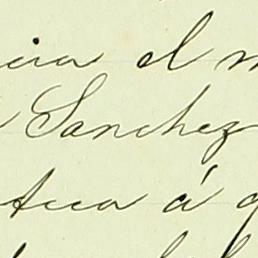 cia el m
Sanchez
teca á q